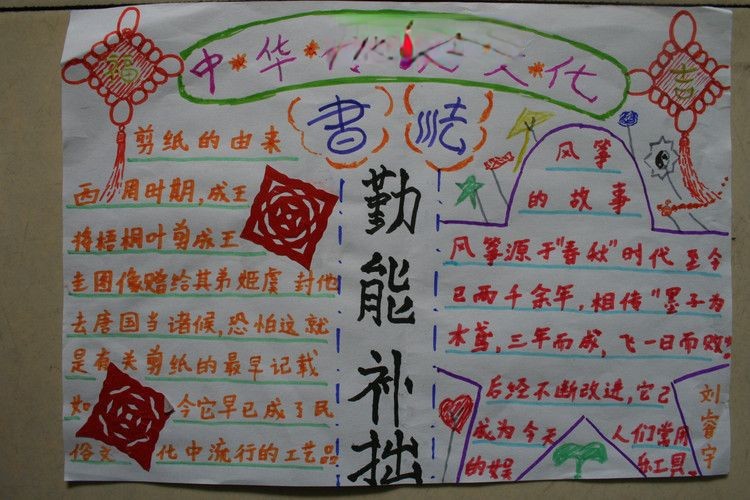 福
吉
中华传 文化
剪纸的由来
西 周时期,成王
将梧桐叶剪成王
圭图像赠给其弟姬虞 封他
去唐国当诸侯,恐怕这就
是有关剪纸的最早记载
如 今它早已成了民
俗文 化中流行的工艺品
書法
勤能补拙
风筝
的故事
风筝源于"春秋"时代 至今
已两千余年,相传"墨子为
木鸢,三年而成,飞一日而败"
后经不断改进,它已
成为今天 人们常用
的娱 乐工具
刘睿宇